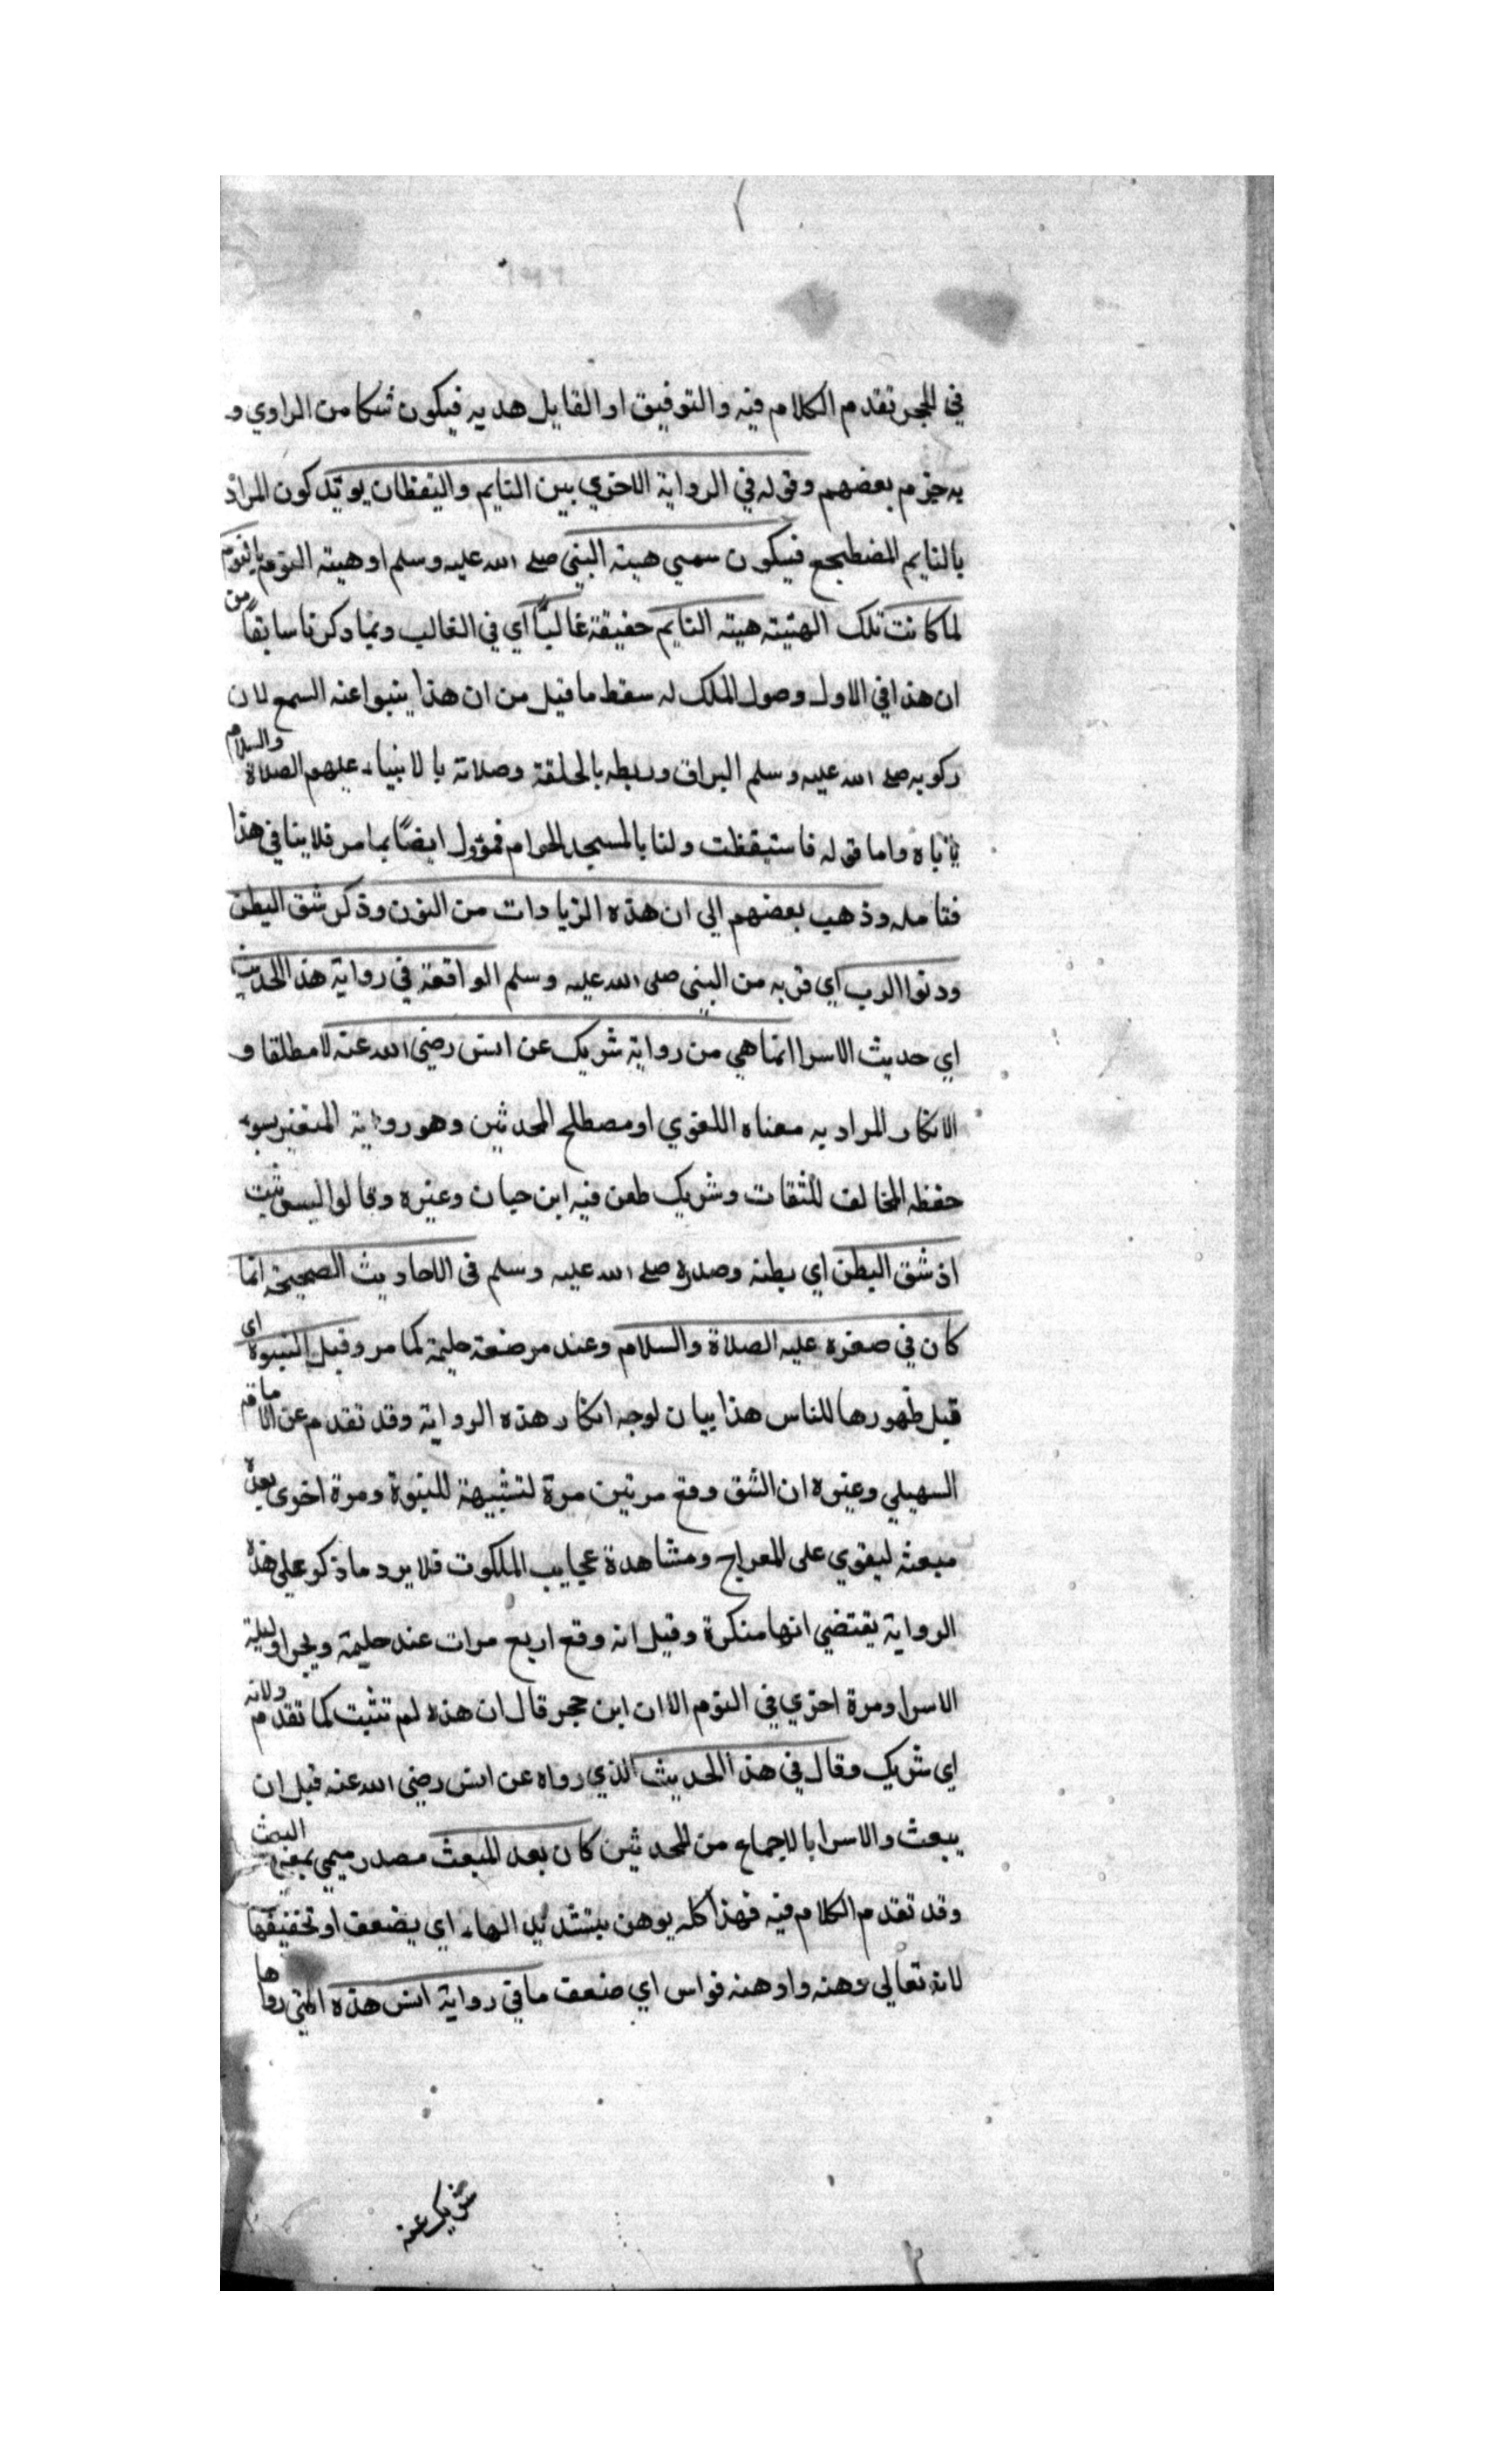 في الحجر تقدم الكلام فيه والتوفيق او القايل هدبه فيكون شكا من الراوي و
به جزم بعضهم وقوله في الرواية الاخري بين النايم واليقظان يويد كون المراد
بالنايم المضطجع فيكون سمي هيئة النبي صلى الله عليه وسلم او هيئة النومة بالنوم
لما كانت تلك الهيئة هيئة النايم حقيقة غالبًا اي في الغالب وبما ذكرنا سابقاً من
ان هذا في الاول وصول الملك له سقط ما قيل من ان هذا ينبوا عنه السمع لان
ركوبه صلى الله عليه وسلم البراق وربطه بالحلقة وصلاته بالانبياء عليهم الصلاة والسلام
ياباه واما قوله فاستيقظت وانا بالمسجد الحرام فمؤول ايضًا بما مر فلا ينافي هذا
فتامله وذهب بعضهم الي ان هذه الزيادات من النون وذكر شق البطن
ودنوا الرب اي قربه من النبي صلى الله عليه وسلم الواقعة في رواية هذا الحديث
اي حديث الاسرا انما هي من رواية شريك عن انس رضي الله عنه لا مطلقا و
الانكار المراد به معناه اللغوي او مصطلح المحدثين وهو رواية المتغير بسوء
حفظه المخالف للثقات وشريك طعن فيه ابن حبان وغيره وقالوا ليس بثبت
اذ شق البطن اي بطنه وصدره صلى الله عليه وسلم في الاحاديث الصحيحة انما
كان في صغره عليه الصلاة والسلام وعند مرضعة حليمة كما مر وقبل النبوة اي
قبل ظهورها للناس هذا بيان لوجه انكار هذه الرواية وقد تقدم عن الامام
السهيلي وغيره ان الشق وقع مرتين مرة لتنبيهة للنبوة ومرة اخرى بعد
مبعثه ليقوي على المعراج ومشاهدة عجايب الملكوت فلا يرد ما ذكر على هذه
الرواية يقتضي انها منكرة وقيل انه وقع اربع مرات عند حليمة وبحرا وليلة
الاسرا ومرة اخري في النوم الا ان ابن حجر قال ان هذه لم تثبت كما تقدم ولانه
اي شريك وقال في هذا الحديث الذي رواه عن انس رضي الله عنه قبل ان
يبعث والاسرا بالاجماع من المحدثين كان بعد المبعث مصدر ميمي بمعني البعث
وقد تقدم الكلام فيه فهذا كله يوهن بتشديد الهاء اي يضعف او تخفيفها
لانه تعالي وهنه واوهنه فواس اي ضعف ما في رواية انس هذه التي رواها
شريك عنه